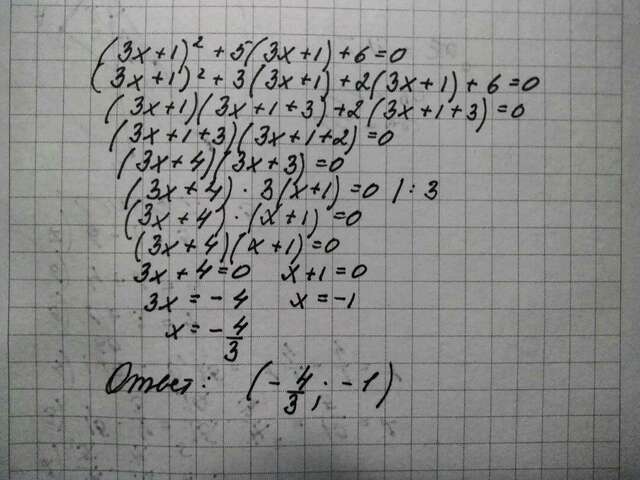 (3x+1)² + 5(3x+1) + 6 = 0
(3x+1)² + 3(3x+1) + 2(3x+1) + 6 = 0
(3x+1)(3x+1+3) + 2(3x+1+3) = 0
(3x+1+3)(3x+1+2) = 0
(3x+4)(3x+3) = 0
(3x+4) · 3(x+1) = 0 / : 3
(3x+4) · (x+1) = 0
(3x+4)(x+1) = 0
3x+4=0 x+1=0
3x = -4 x = -1
x = -4/3
Ответ: (-4/3; -1)